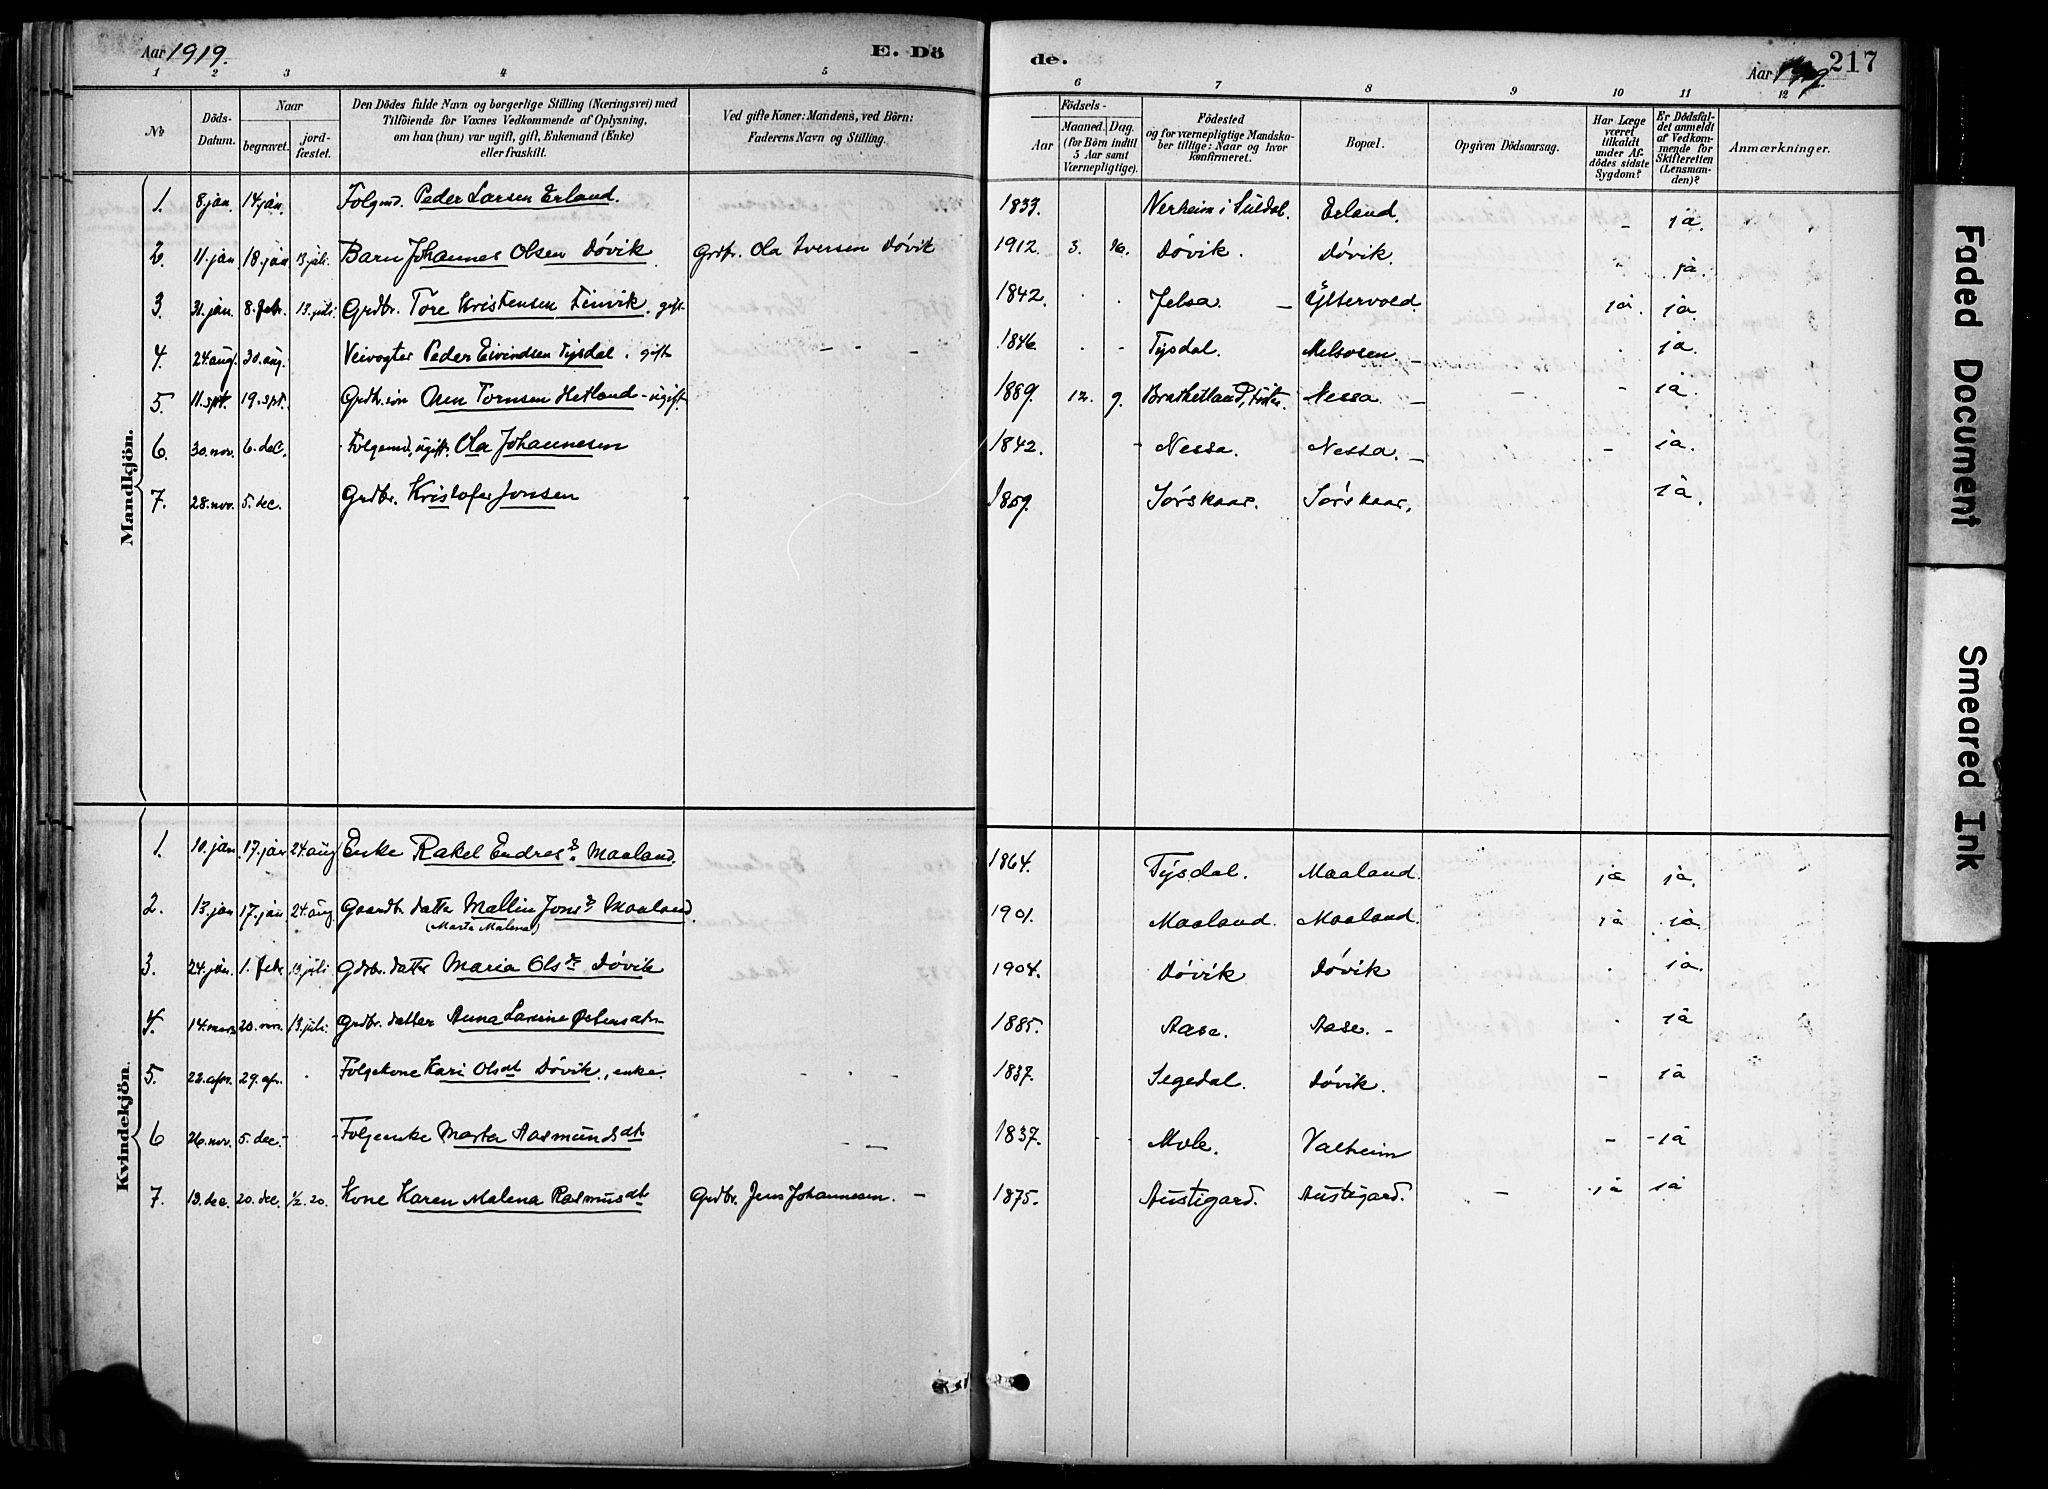 Aar 1919.
E. Dö
de.
Aar 1919
217
1 2 3 4 5 6 7 8 9 10 11 12
No
Döds-Datum.
Naar
begravet.
jord-fæstet.
Den Dödes fulde Navn og borgerlige Stilling (Næringsvei) med
Tilföiende for Voxnes Vedkommende af Oplysning,
om han (hun) var ugift, gift, Enkemand (Enke)
eller fraskilt.
Ved gifte Koner: Mandens, ved Börn:
Faderens Navn og Stilling.
Födsels-
Aar
Maaned. Dag.
(for Börn indtil
5 Aar samt
Værnepligtige).
Födested
og for værnepligtige Mandska-
ber tillige: Naar og hvor
konfirmeret.
Bopæl.
Opgiven Dödsaarsag.
Har Læge
været
tilkaldt
under Af-
dödes sidste
Sygdom?
Er Dödsfal-
det anmeldt
af Vedkom-
mende for
Skifteretten
(Lensman-
den)?
Anmærkninger.
Mandkjön.
1. 8 jan. 14 jan. Folgmd. Peder Larsen Erland. 1833. Nerheim i Suldal. Erland. - ja.
2. 11. jan 18. jan 13. juli. Barn Johannes Olsen Dövik Grdbr. Ola Iversen Dövik 1912. 3. 16. Dövik. Dövik. ja.
3. 31. jan. 8. febr. 13. juli. Grdbr. Tore Kristensen Finvik. gift. 1842. Jelsa. - Yttervold. ja. ja.
4. 24. aug. 30. aug. Veivogter Peder Eivindsen Tysdal. gift - - - 1846. Tysdal. Melsosen. - ja.
5. 11. spt. 19. spt. Grdbr. sön Tornsen Hetland - ugift. 1889. 12. 9. Nessa. - - - ja.
6. 30. nov. 6. dec. - Folgemd, ugift. Ola Johannesen 1842. - Nessa. Nessa. - - ja.
7. 28. nov. 5. dec. Grdbr. Kristofer Jonsen 1859. Sörskaar. Sörskaar. ja.
Kvindekjön.
1. 10. jan. 17. jan 24. aug Enke Rakel Endres d. Maaland. 1864. Tysdal. Maaland. ja ja.
2. 13. jan 17. jan 24. aug. Gaardbr. datter Mallin Jons d. Maaland. 1901. Maaland. Maaland. ja ja.
(Marta Malena)
3. 24. jan. 1. febr. 13 juli Grdbr. datter Maria Ols dr. Dövik 1904. Dövik Dövik ja.
4. 14. mars 20. mrs. 13. juli. Grdbr. datter Anna Larine Østensdtr 1885. Aase. Aase. - ja
5. 22. apr. 29. apr. Folgekone Kari Olsdt Dövik, enke. 1837. Segedal. Dövik. - ja
6 26. nov. 5. dec. - - Folgeenke Marta Aasmundsdtr - - 1837. - - Mele. Valheim - - ja
7. 13. dec. 20. dec. 1/2. 20. Kone Karen Malena Rasmusdtr Grdbr. Jens Johannesen. - 1875. Austigard. Austigard. - ja ja
Faded Document
Smeared Ink